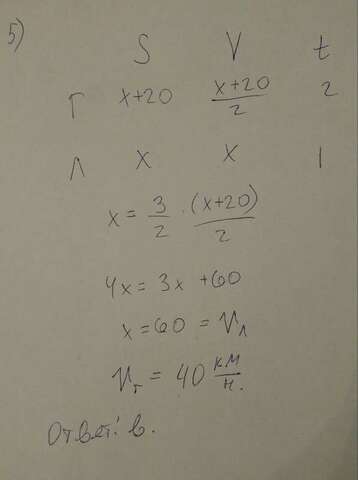 5)
S V t
Г x+20 x+20/2 2
Л x x 1
x = 3/2 · (x+20)/2
4x = 3x + 60
x = 60 = Vл
Vг = 40 км/ч.
Ответ: в.